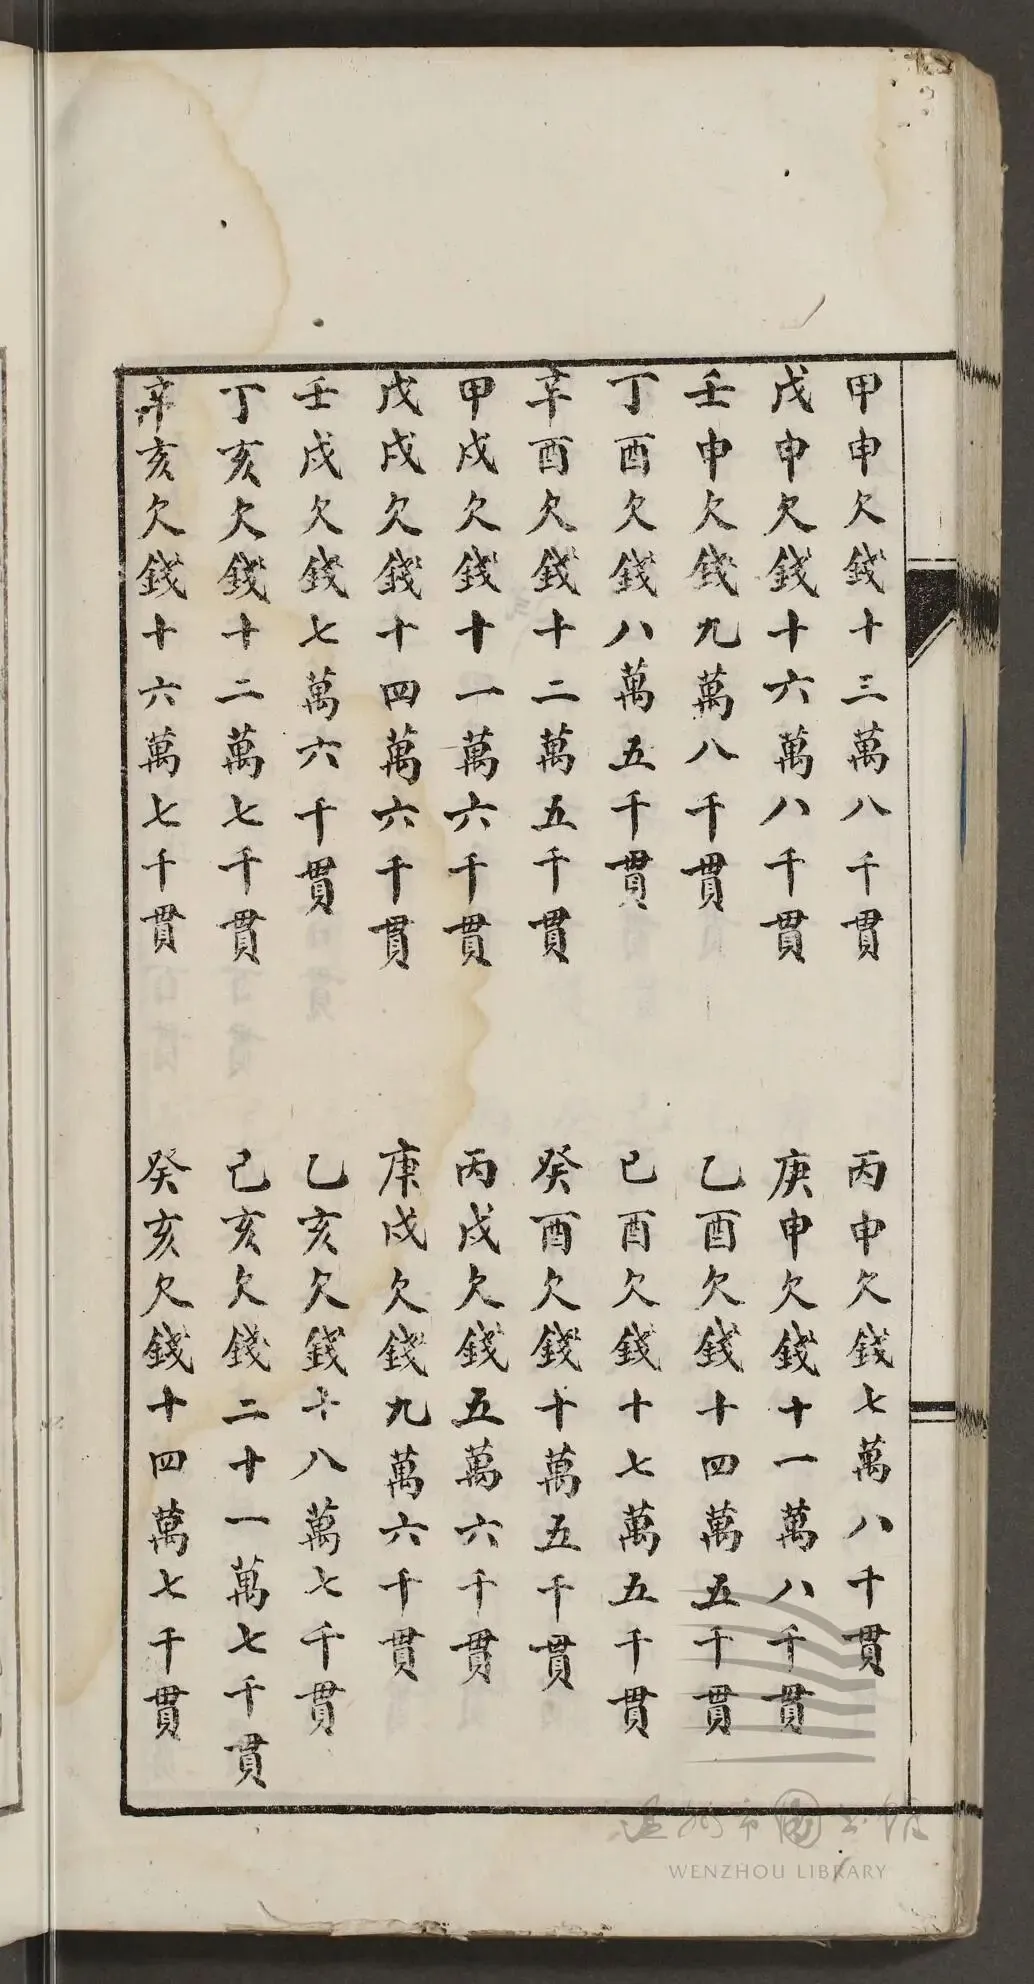 甲申欠錢十三萬八千貫
丙申欠錢七萬八千貫
戊申欠錢十六萬八千貫
庚申欠錢十一萬八千貫
壬申欠錢九萬八千貫
乙酉欠錢十四萬五千貫
丁酉欠錢八萬五千貫
已酉欠錢十七萬五千貫
辛酉欠錢十二萬五千貫
癸酉欠錢十萬五千貫
甲戌欠錢十一萬六千貫
丙戌欠錢五萬六千貫
戊戌欠錢十四萬六千貫
庚戌欠錢九萬六千貫
壬戌欠錢七萬六千貫
乙亥欠錢十八萬七千貫
丁亥欠錢十二萬七千貫
己亥欠錢二十一萬七千貫
辛亥欠錢十六萬七千貫
癸亥欠錢十四萬七千貫
温州市圖書館
WENZHOU LIBRARY